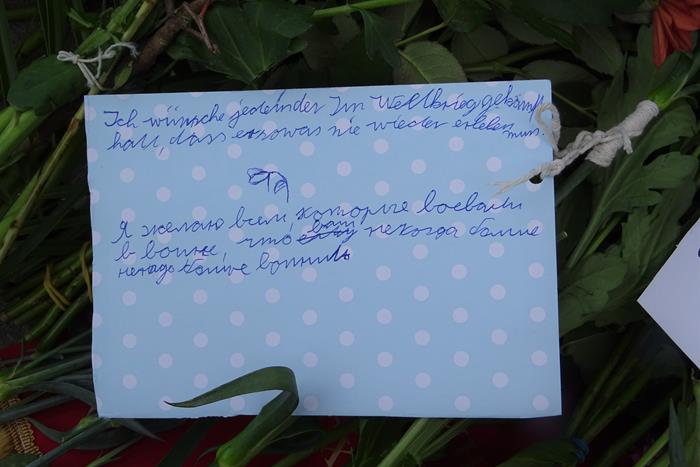 Ich wünsche jedem der Im Weltkrieg gekämpft
hatt, dass er sowas nie wieder erleben muss.
Я желаю всем которые воевали
в войне, что вам некогда больше
ненадо больше